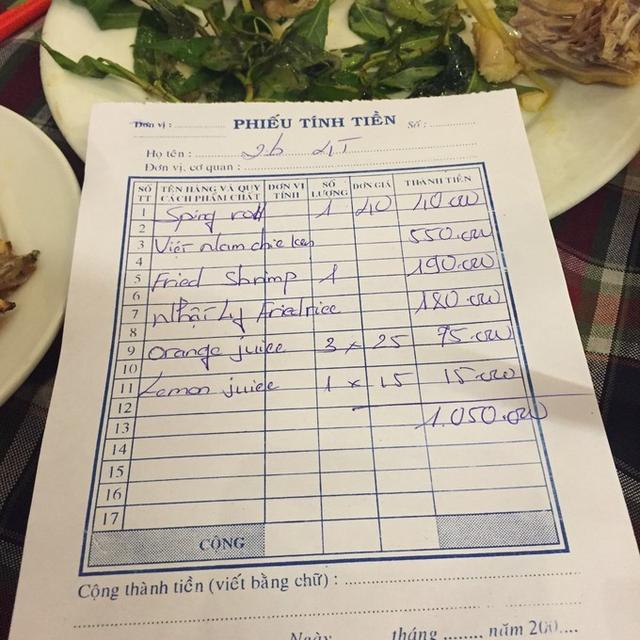 Đơn vị : PHIẾU TÍNH TIỀN Số :
Họ tên : 26 4T
Đơn vị, cơ quan :
SỐ TT TÊN HÀNG VÀ QUY CÁCH PHẨM CHẤT ĐƠN VỊ TÍNH SỐ LƯỢNG ĐƠN GIÁ THÀNH TIỀN
1 Sping roll 1 40 40.000
2
3 Việt nam chicken 550.000
4
5 Fried Shrimp 1 190.000
6
7 Fried rice 180.000
8
9 Orange juice 3 x 25 75.000
10
11 Lemon juice 1 x 15 15.000
12
13 1.050.000
14
15
16
17
CỘNG
Cộng thành tiền (viết bằng chữ) :
Ngày tháng năm 200